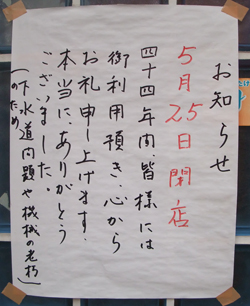 お知らせ
５月２５日閉店
四十四年間、皆様には
御利用預き、心から
お礼申し上げます。
本当に、ありがとう
ございました。
（下水道問題や機械の老朽）
のため